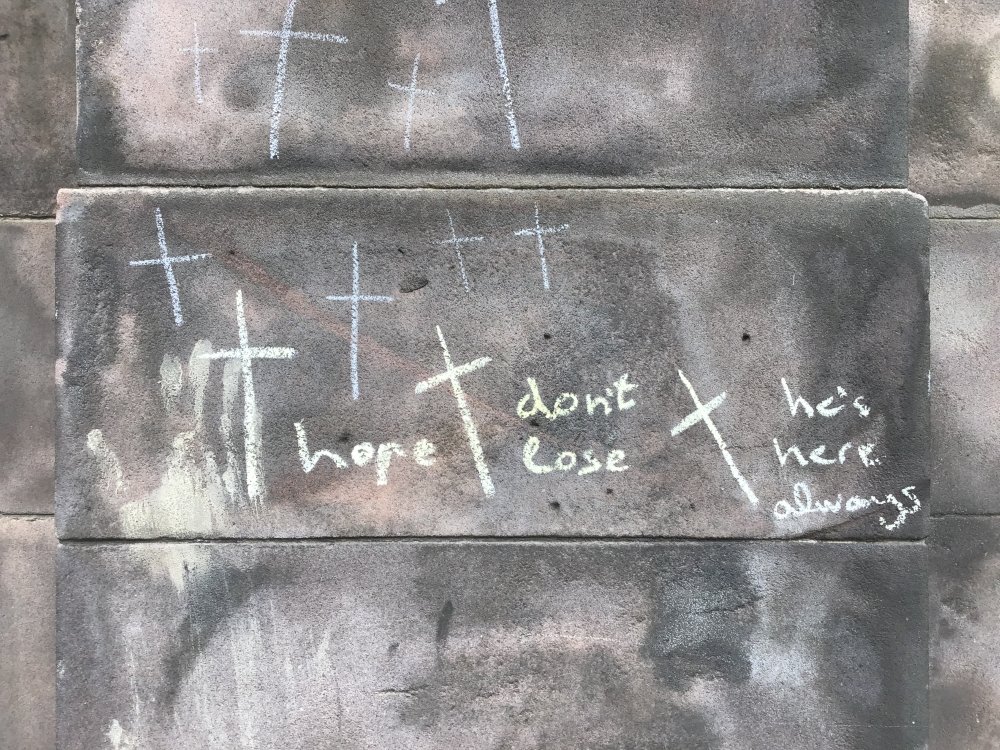 hope
don't
lose
he's
here
always